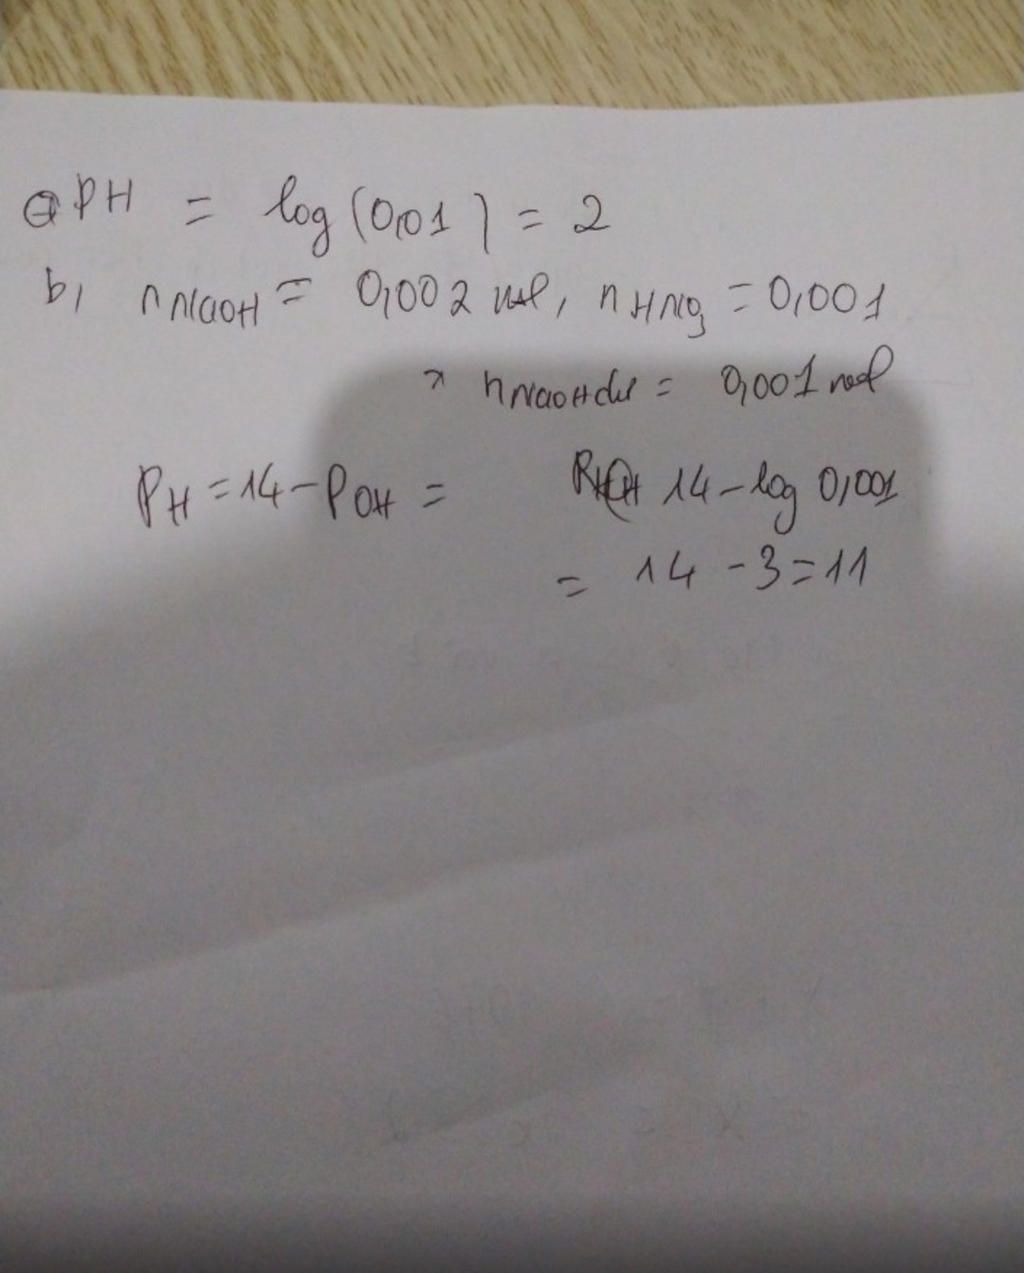 a PH = log(0,01) = 2
b, nNaOH = 0,002 mol, nHNO3 = 0,001
nNaOH dư = 0,001 mol
PH = 14 - POH = 14 - log 0,001
= 14 - 3 = 11